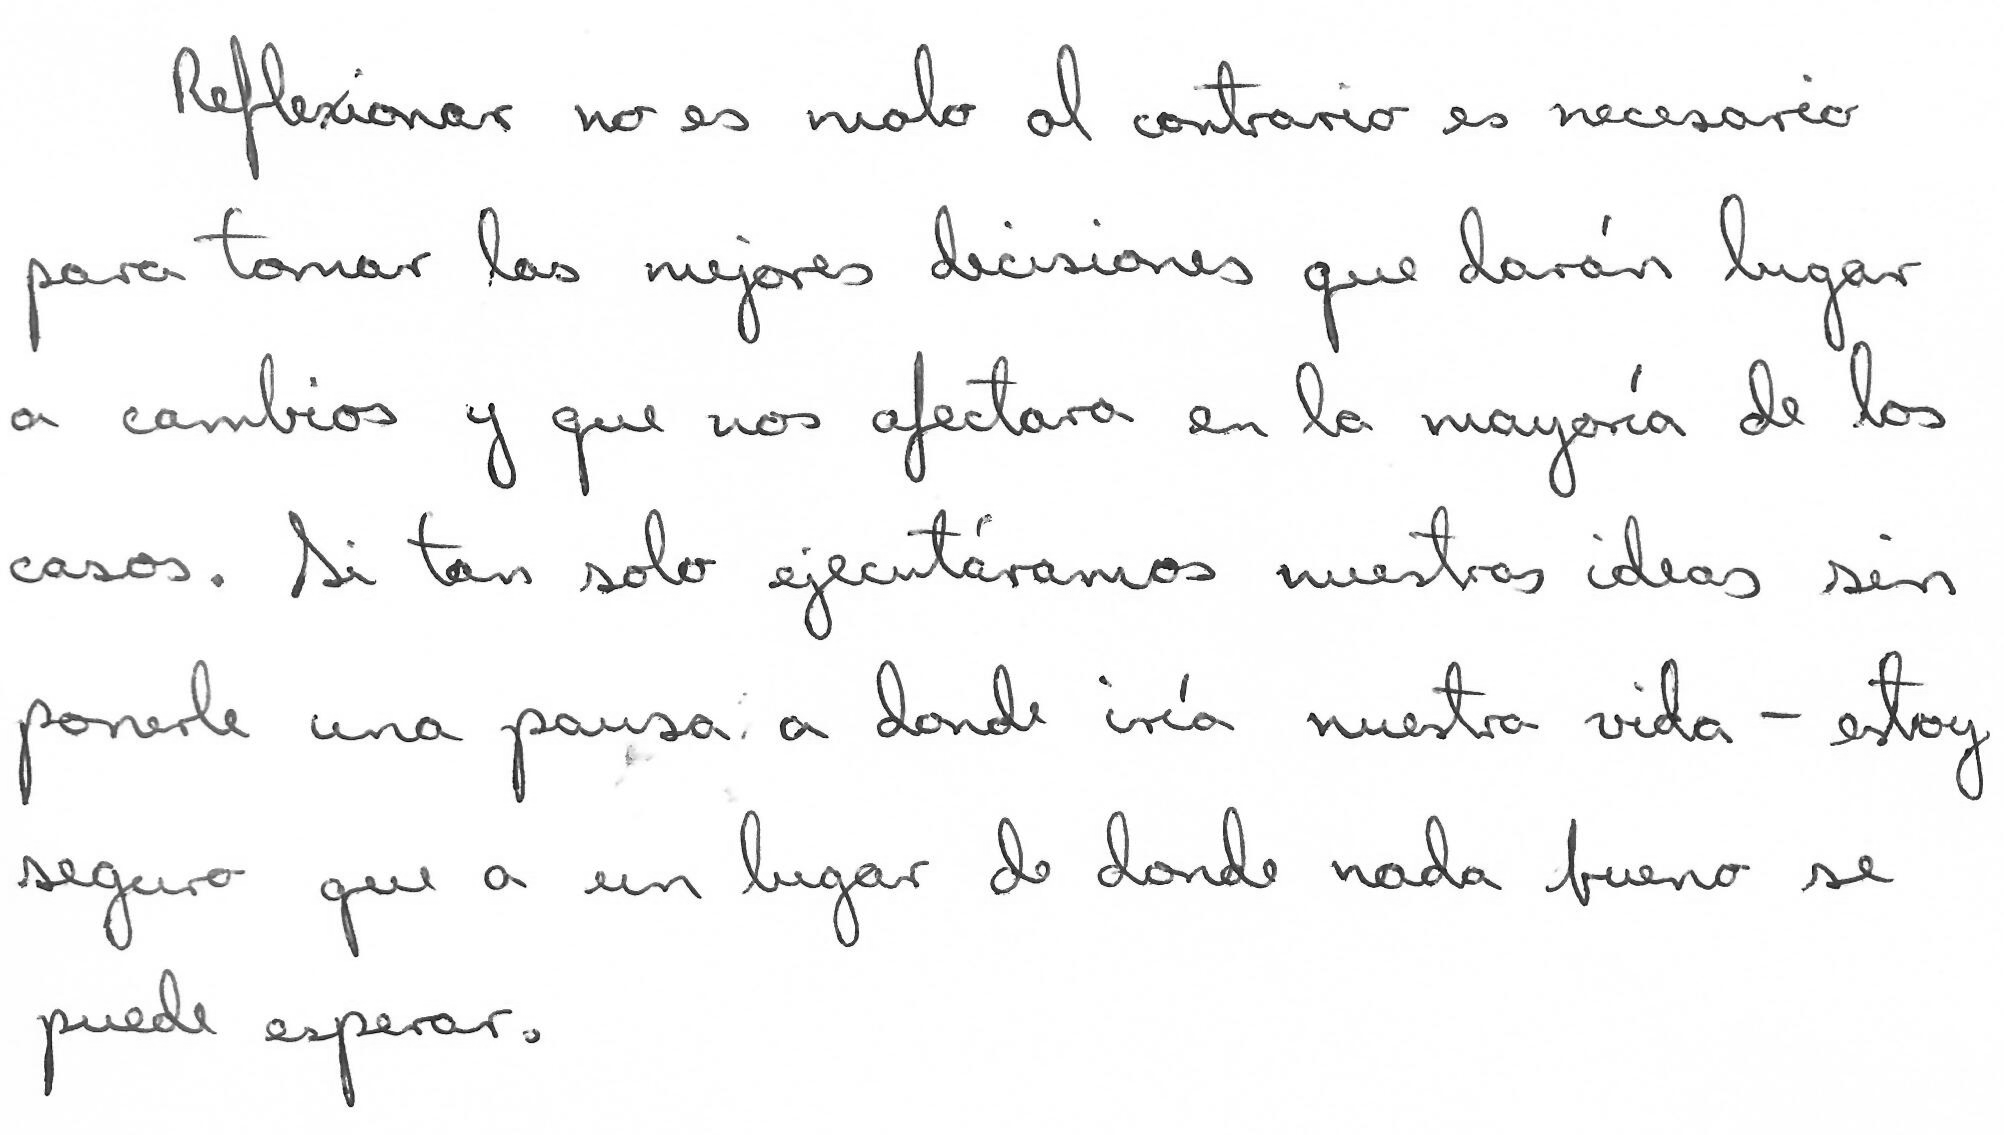 Reflexionar no es malo al contrario es necesario
para tomar las mejores decisiones que darán lugar
a cambios y que nos afectara en la mayoría de los
casos. Si tan solo ejecutáramos nuestras ideas sin
ponerle una pausa a donde iría nuestra vida - estoy
seguro que a un lugar de donde nada bueno se
puede esperar.